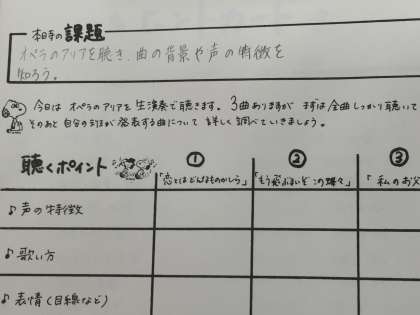 本日の課題
オペラのアリアを聴き、曲の背景や声の特徴を
知ろう。
今日は オペラのアリアを 生演奏で聴きます。 3曲ありますが まずは全曲 しっかり聴いて
そのあと 自分の班が 発表する曲について 詳しく 調べていきましょう。
聴くポイント ① ② ③
「恋とはどんなものかしら」 「もう飛ぶまいぞこの蝶々」 「私のお父
♪声の特徴
♪歌い方
♪表情(目線など)